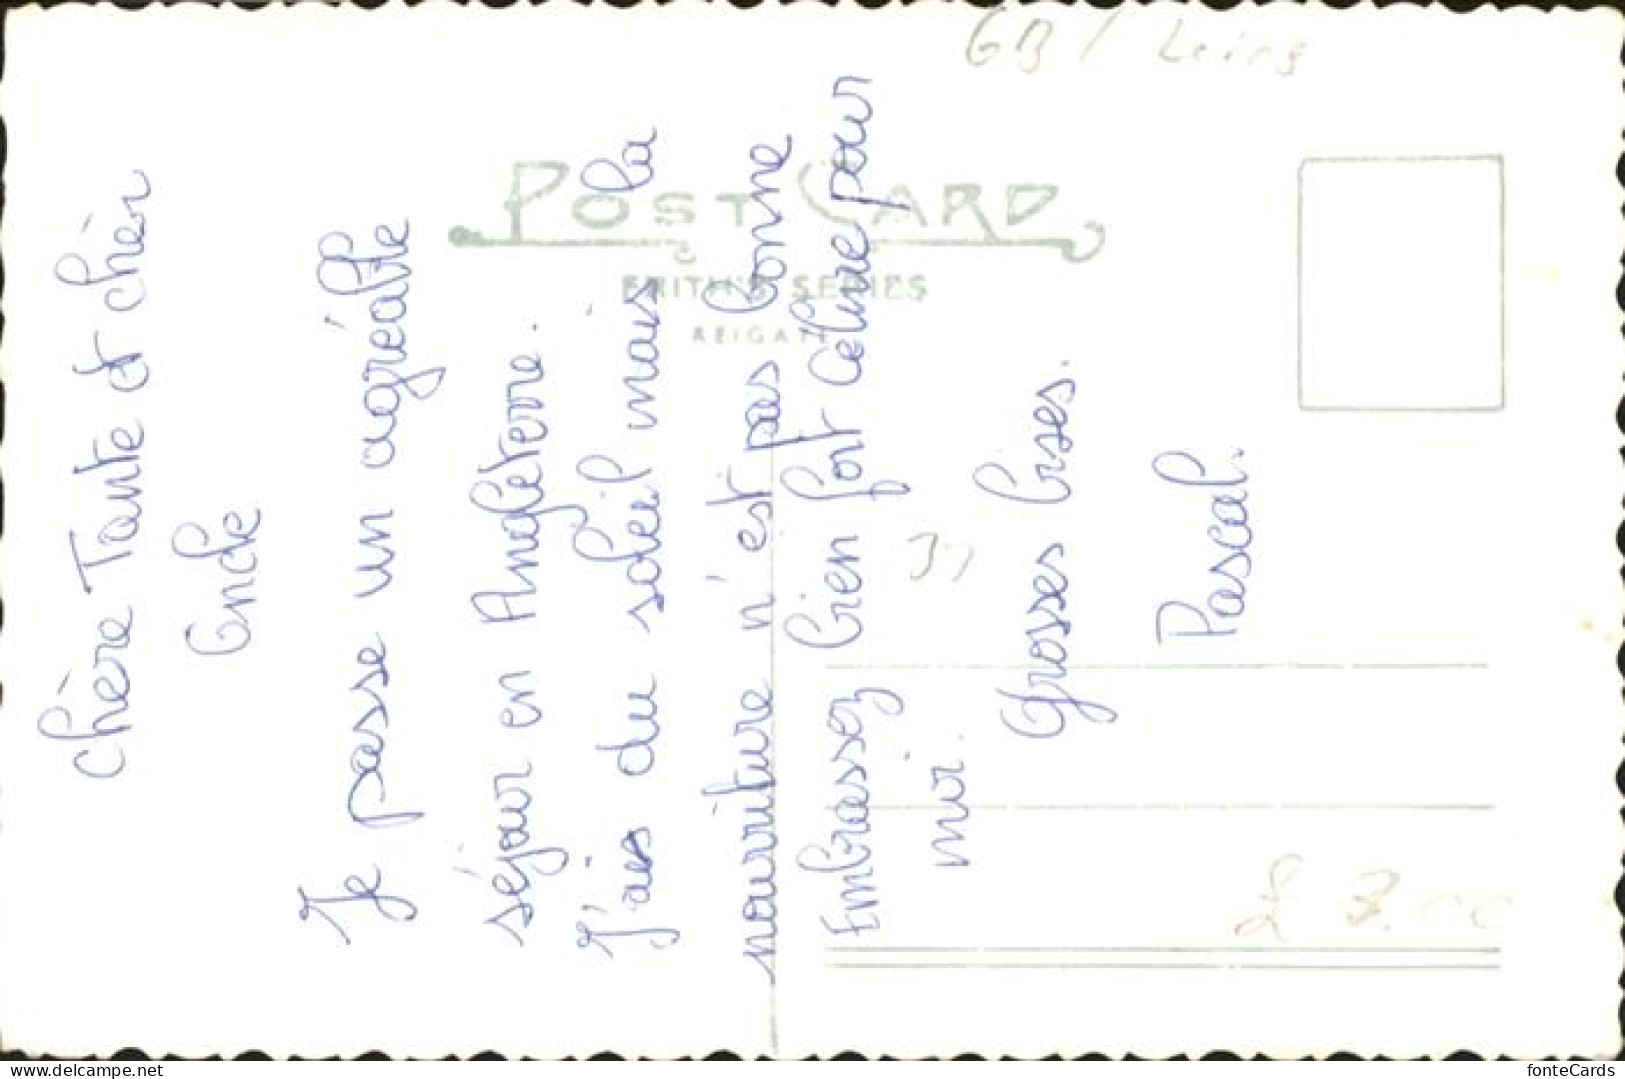 chère Tante et chèr
Oncle
Je passe un agréable
séjour en Angleterre.
J'ais du soleil mais la
nourriture n'est pas bonne
Embrassez bien fort Celine pour
moi.
Grosses bises.
Pascal.
POST CARD
FRITH'S SERIES
REIGATE
GB /
37
£ 3.00
www.delcampe.net
fonteCards